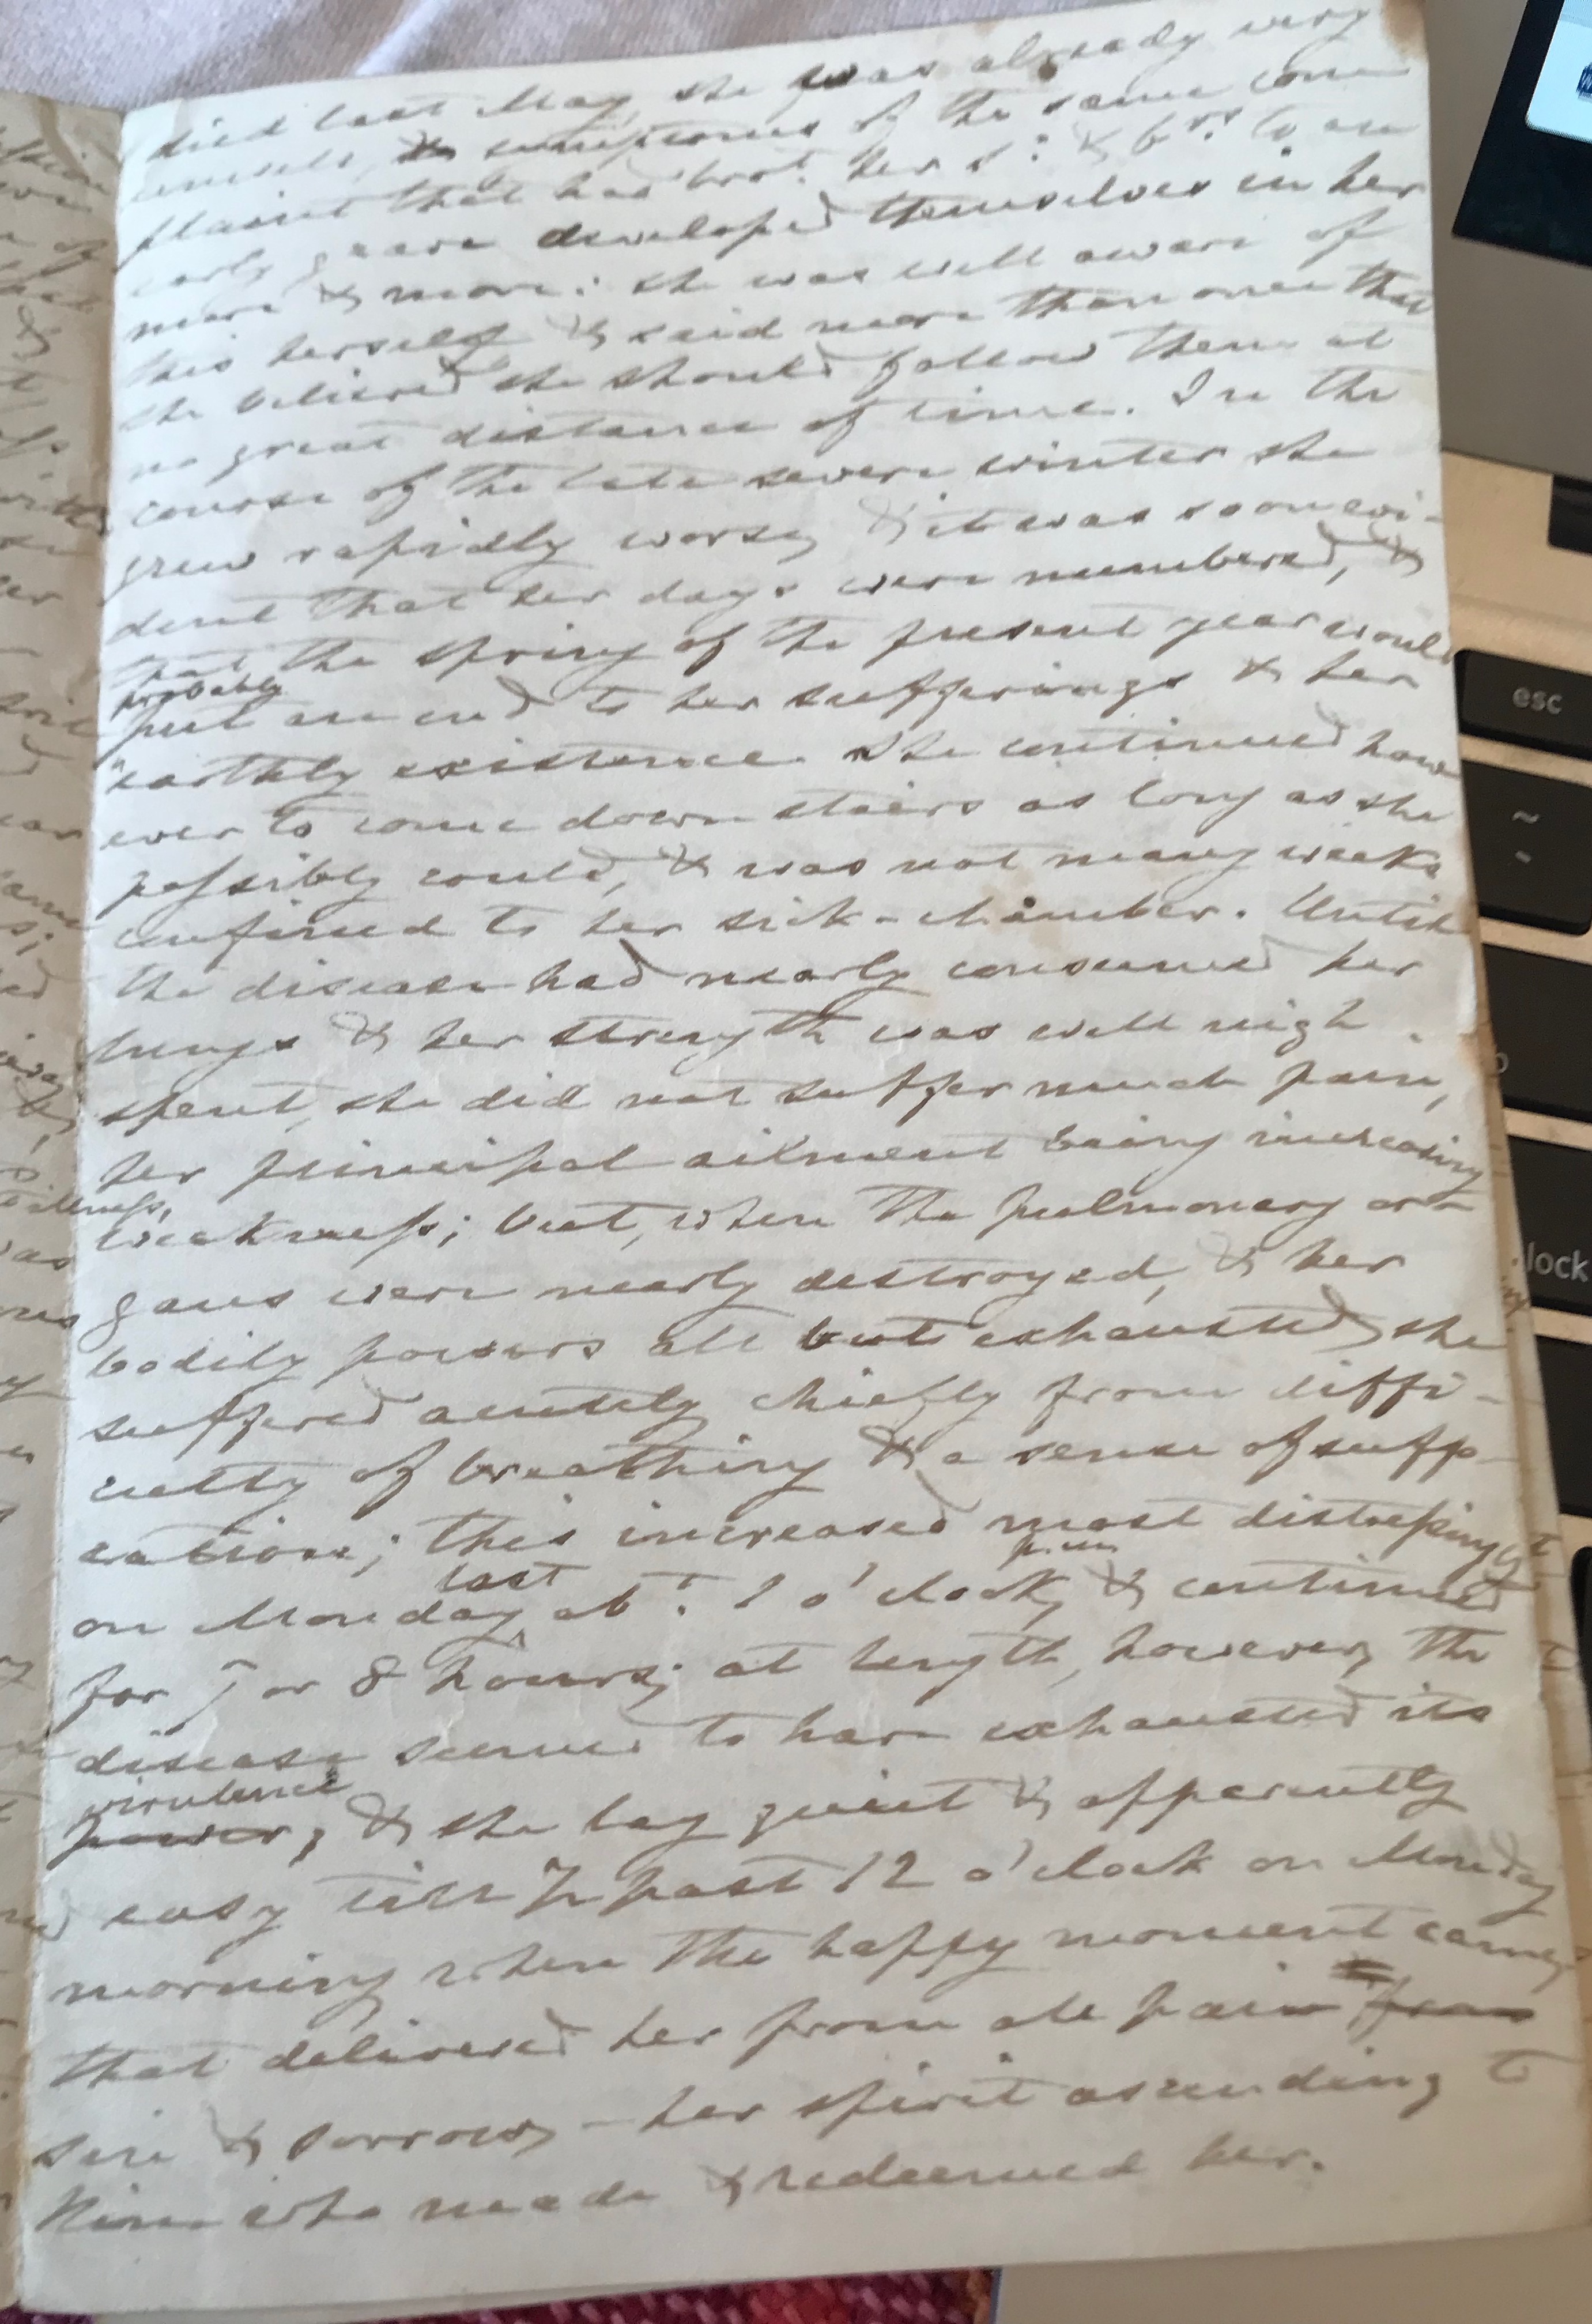 died last May, she was already very
unwell, symptoms of the same com
plaint that had brot. her s: & brs. to an
early grave developed themselves in her
more & more: she was well aware of
this herself & said more than once that
she believed she should follow them at
no great distance of time. In the
course of the late severe winter she
grew rapidly worse, & it was soon evi-
dent that her days were numbered, &
that the spring of the present year would
probably
put an end to her sufferings & her
earthly existence. She continued how
ever to come down stairs as long as she
possibly could, & was not many weeks
confined to her sick-chamber. Until
the disease had nearly consumed her
lungs & her strength was well nigh
spent, she did not suffer much pain,
her principal ailment being increasing
weakness; but, when the pulmonary or-
gans were nearly destroyed, & her
bodily powers all but exhausted, she
suffered acutely chiefly from diffi-
culty of breathing & a sense of suffo-
cation; this increased most distressingly
last p.m.
on Monday, abt. 1 o'clock, & continued
for 7 or 8 hours; at length, however, the
disease seemed to have exhausted its
virulence
power, & she lay quiet & apparently
easy till ½ past 12 o'clock on Monday
morning when the happy moment came,
that delivered her from all pain from
sin & sorrow, - her spirit ascending to
Him who made & redeemed her.
esc
lock